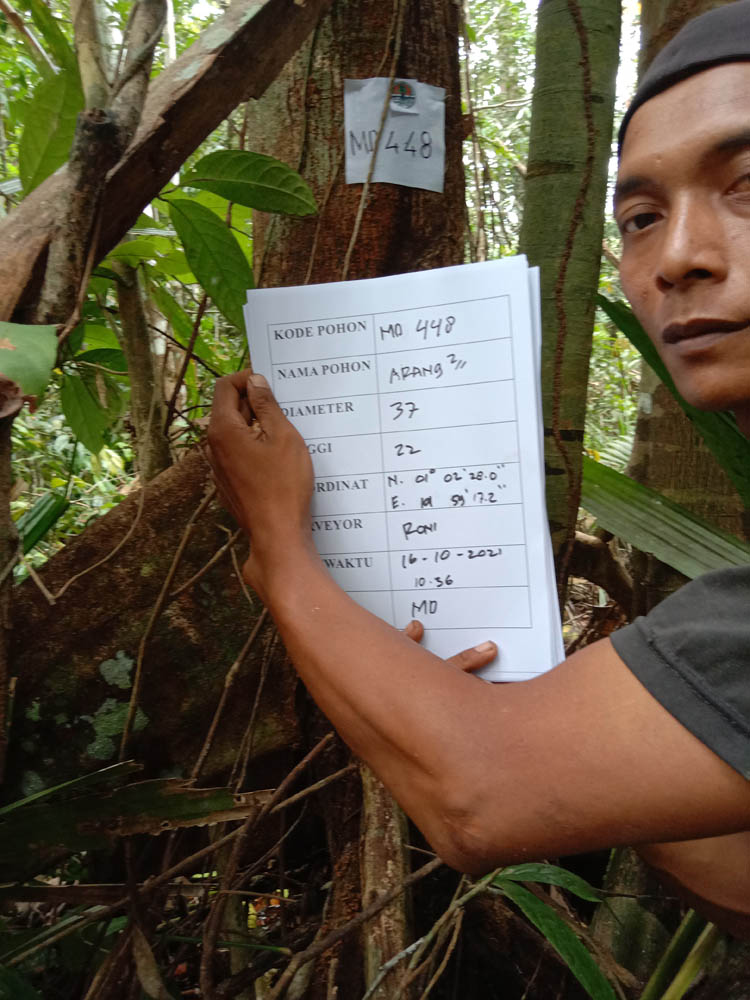 MD 448
KODE POHON MD 448
NAMA POHON ARANG 2//
DIAMETER 37
GGI 22
ORDINAT N. 01° 02' 28.0"
E. 101 59' 17.2"
VEYOR RONI
WAKTU 16-10-2021
10.36
MD